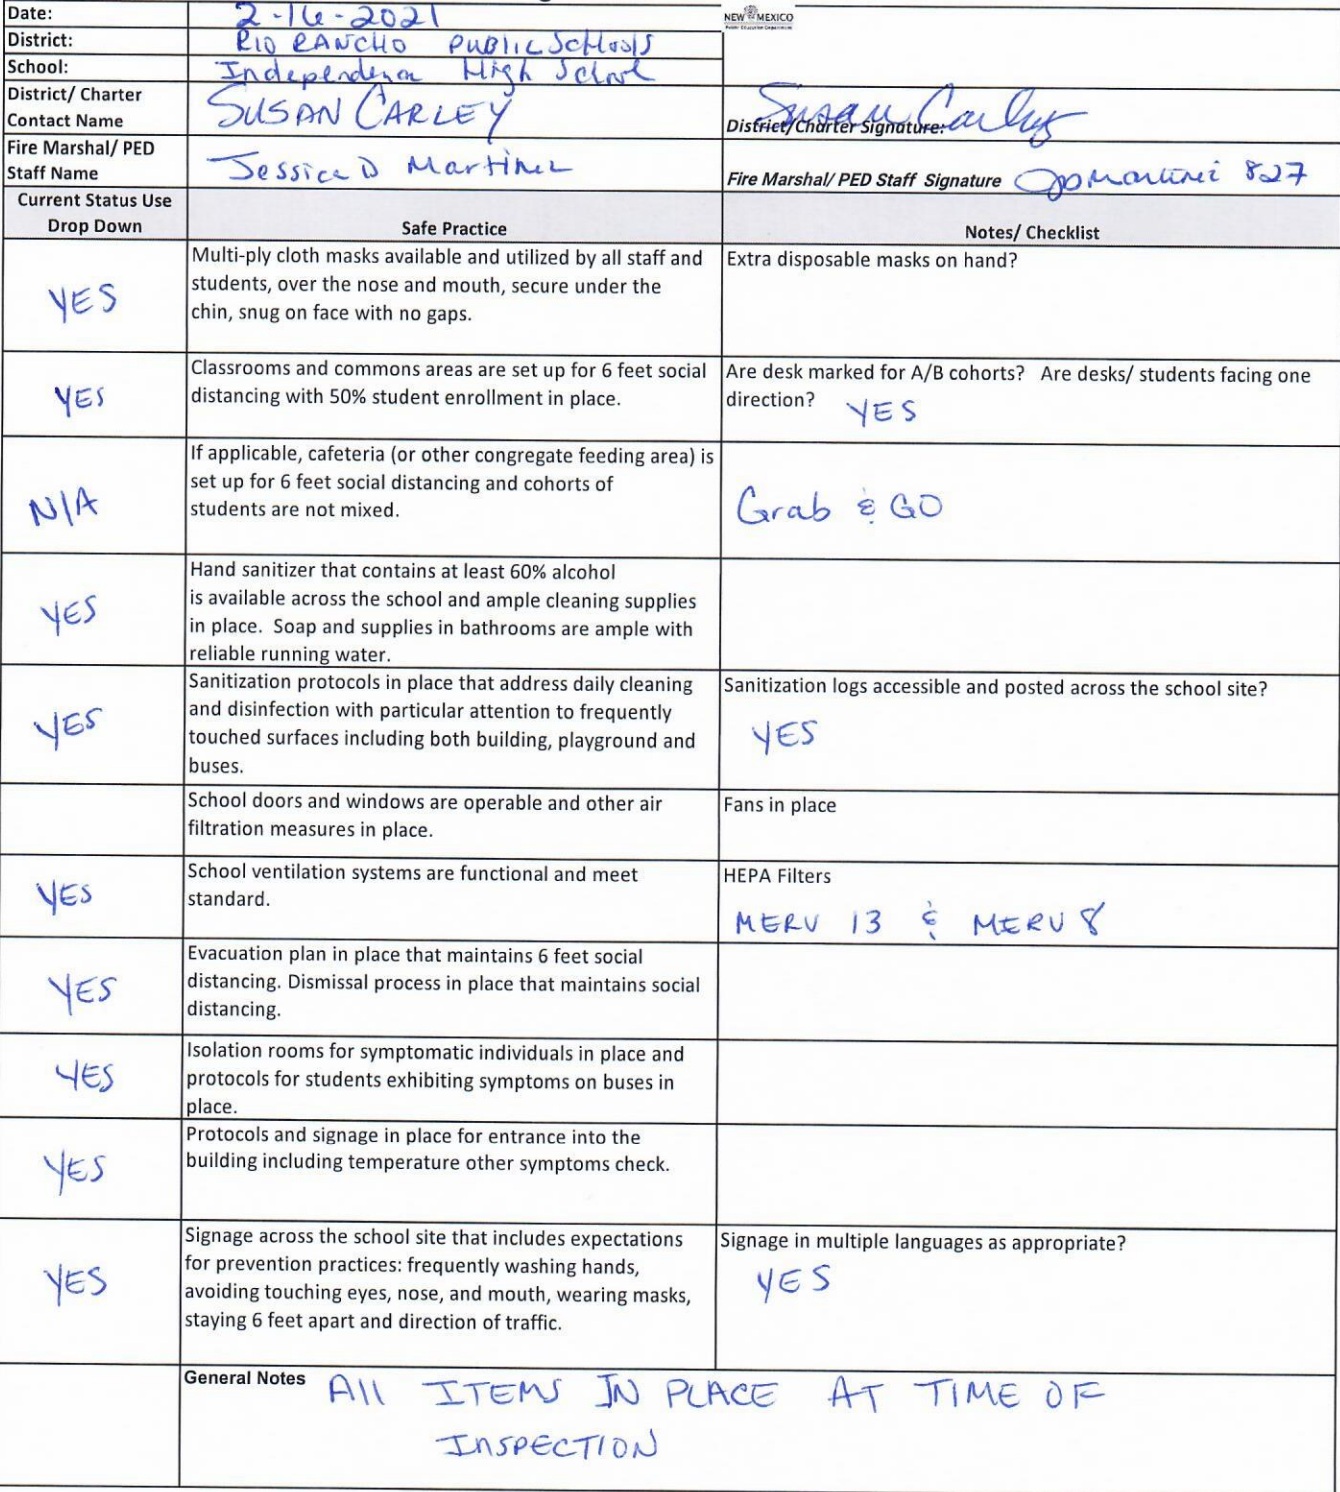 Date: 2-16-2021
NEW MEXICO
Public Education Department
District: RIO RANCHO PUBLIC SCHOOLS
School: Independence High School
District/ Charter
Contact Name SUSAN CARLEY
Susan Carley
District/Charter Signature:
Fire Marshal/ PED
Staff Name Jessica D Martinez
Fire Marshal/ PED Staff Signature JDMartinez 827
Current Status Use
Drop Down
Safe Practice
Notes/ Checklist
YES
Multi-ply cloth masks available and utilized by all staff and
students, over the nose and mouth, secure under the
chin, snug on face with no gaps.
Extra disposable masks on hand?
YES
Classrooms and commons areas are set up for 6 feet social
distancing with 50% student enrollment in place.
Are desk marked for A/B cohorts? Are desks/ students facing one
direction? YES
N/A
If applicable, cafeteria (or other congregate feeding area) is
set up for 6 feet social distancing and cohorts of
students are not mixed.
Grab & GO
YES
Hand sanitizer that contains at least 60% alcohol
is available across the school and ample cleaning supplies
in place. Soap and supplies in bathrooms are ample with
reliable running water.
YES
Sanitization protocols in place that address daily cleaning
and disinfection with particular attention to frequently
touched surfaces including both building, playground and
buses.
Sanitization logs accessible and posted across the school site?
YES
School doors and windows are operable and other air
filtration measures in place.
Fans in place
YES
School ventilation systems are functional and meet
standard.
HEPA Filters
MERV 13 & MERV 8
YES
Evacuation plan in place that maintains 6 feet social
distancing. Dismissal process in place that maintains social
distancing.
YES
Isolation rooms for symptomatic individuals in place and
protocols for students exhibiting symptoms on buses in
place.
YES
Protocols and signage in place for entrance into the
building including temperature other symptoms check.
YES
Signage across the school site that includes expectations
for prevention practices: frequently washing hands,
avoiding touching eyes, nose, and mouth, wearing masks,
staying 6 feet apart and direction of traffic.
Signage in multiple languages as appropriate?
YES
General Notes All ITEMS IN PLACE AT TIME OF
INSPECTION